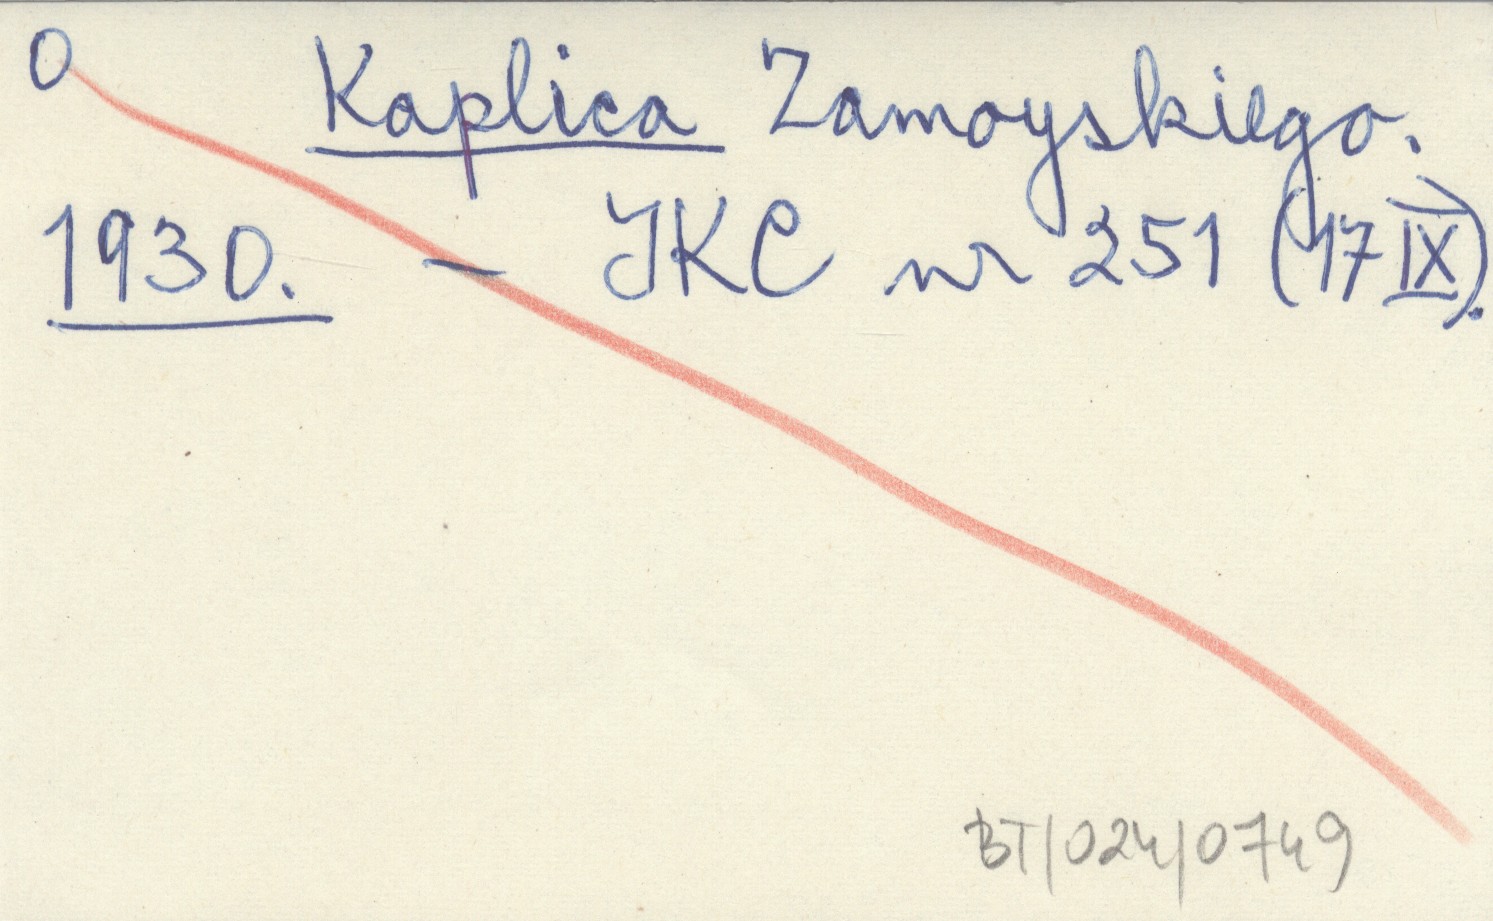 0 Kaplica Zamoyskiego.
1930. — IKC nr 251 (17 IX).
BT/024/0749